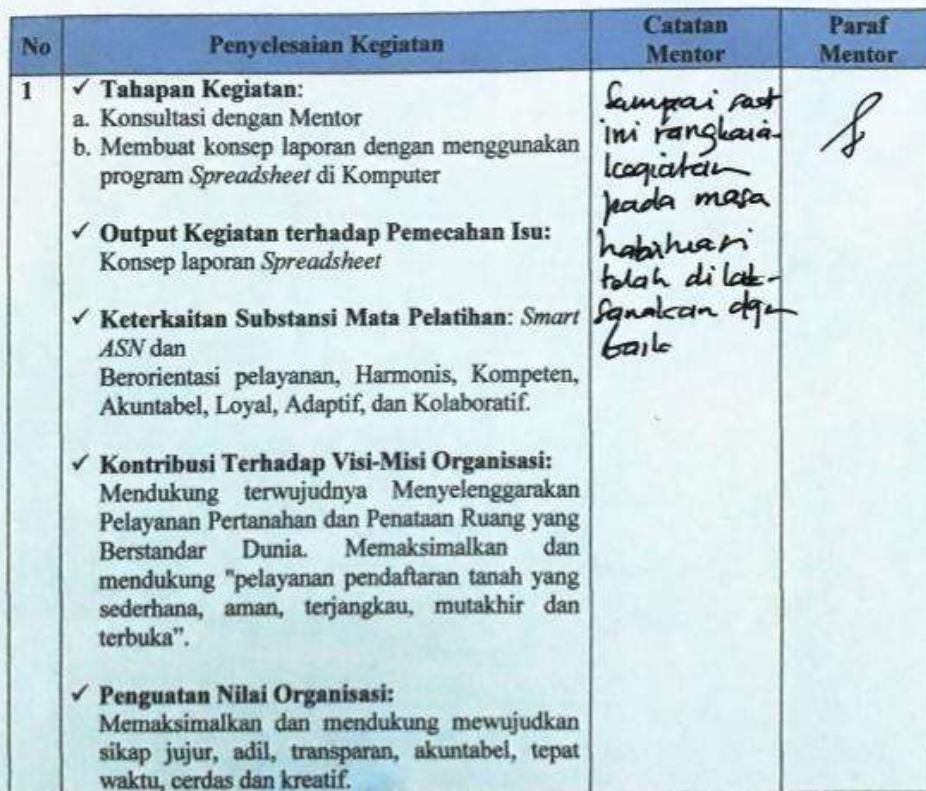 No
Penyelesaian Kegiatan
Catatan
Mentor
Paraf
Mentor
1
✓ Tahapan Kegiatan:
a. Konsultasi dengan Mentor
b. Membuat konsep laporan dengan menggunakan
program Spreadsheet di Komputer
✓ Output Kegiatan terhadap Pemecahan Isu:
Konsep laporan Spreadsheet
✓ Keterkaitan Substansi Mata Pelatihan: Smart
ASN dan
Berorientasi pelayanan, Harmonis, Kompeten,
Akuntabel, Loyal, Adaptif, dan Kolaboratif.
✓ Kontribusi Terhadap Visi-Misi Organisasi:
Mendukung terwujudnya Menyelenggarakan
Pelayanan Pertanahan dan Penataan Ruang yang
Berstandar Dunia. Memaksimalkan dan
mendukung "pelayanan pendaftaran tanah yang
sederhana, aman, terjangkau, mutakhir dan
terbuka".
✓ Penguatan Nilai Organisasi:
Memaksimalkan dan mendukung mewujudkan
sikap jujur, adil, transparan, akuntabel, tepat
waktu, cerdas dan kreatif.
Sampai saat
ini rangkaia-
kegiatan
pada masa
habituasi
telah dilak-
sanakan dgn
baik